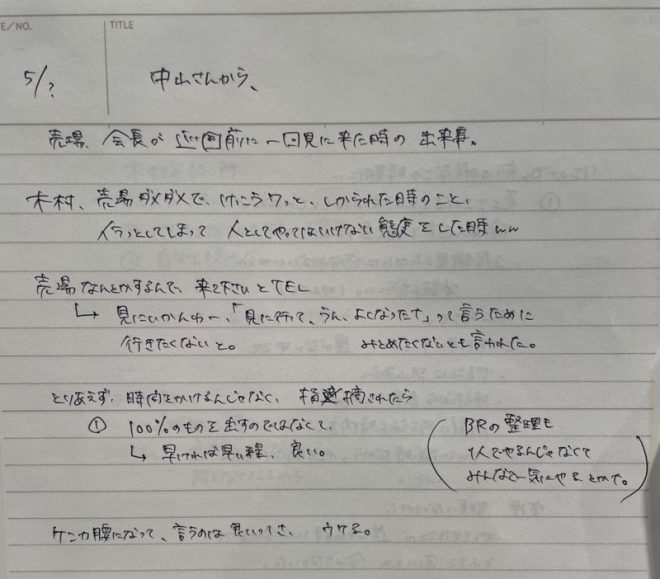 E/NO.
TITLE
5/?
中山さんから、
売場、会長が 前に一回見に来た時の 出来事。
木村、売場ダメダメで、けっこうワッと、しかられた時のこと、
イラっとしてしまって 人としてやってはいけない 態度をした時
売場なんとかするんで、来て下さいとTEL
↳ 見にいかんわー、「見に行って、うん、よくなったす」って言うために
行きたくないと。 みとめたくないとも言われた。
とりあえず、時間をかけるんじゃなく、指摘されたら
① 100%のものを出すのではなくて、
↳ 早ければ早い程、良い。
(BRの整理も
1人でやるんじゃなくて
みんなで一気にやるとかで。)
ケンカ腰になって、言うのは良いってさ、ウケる。